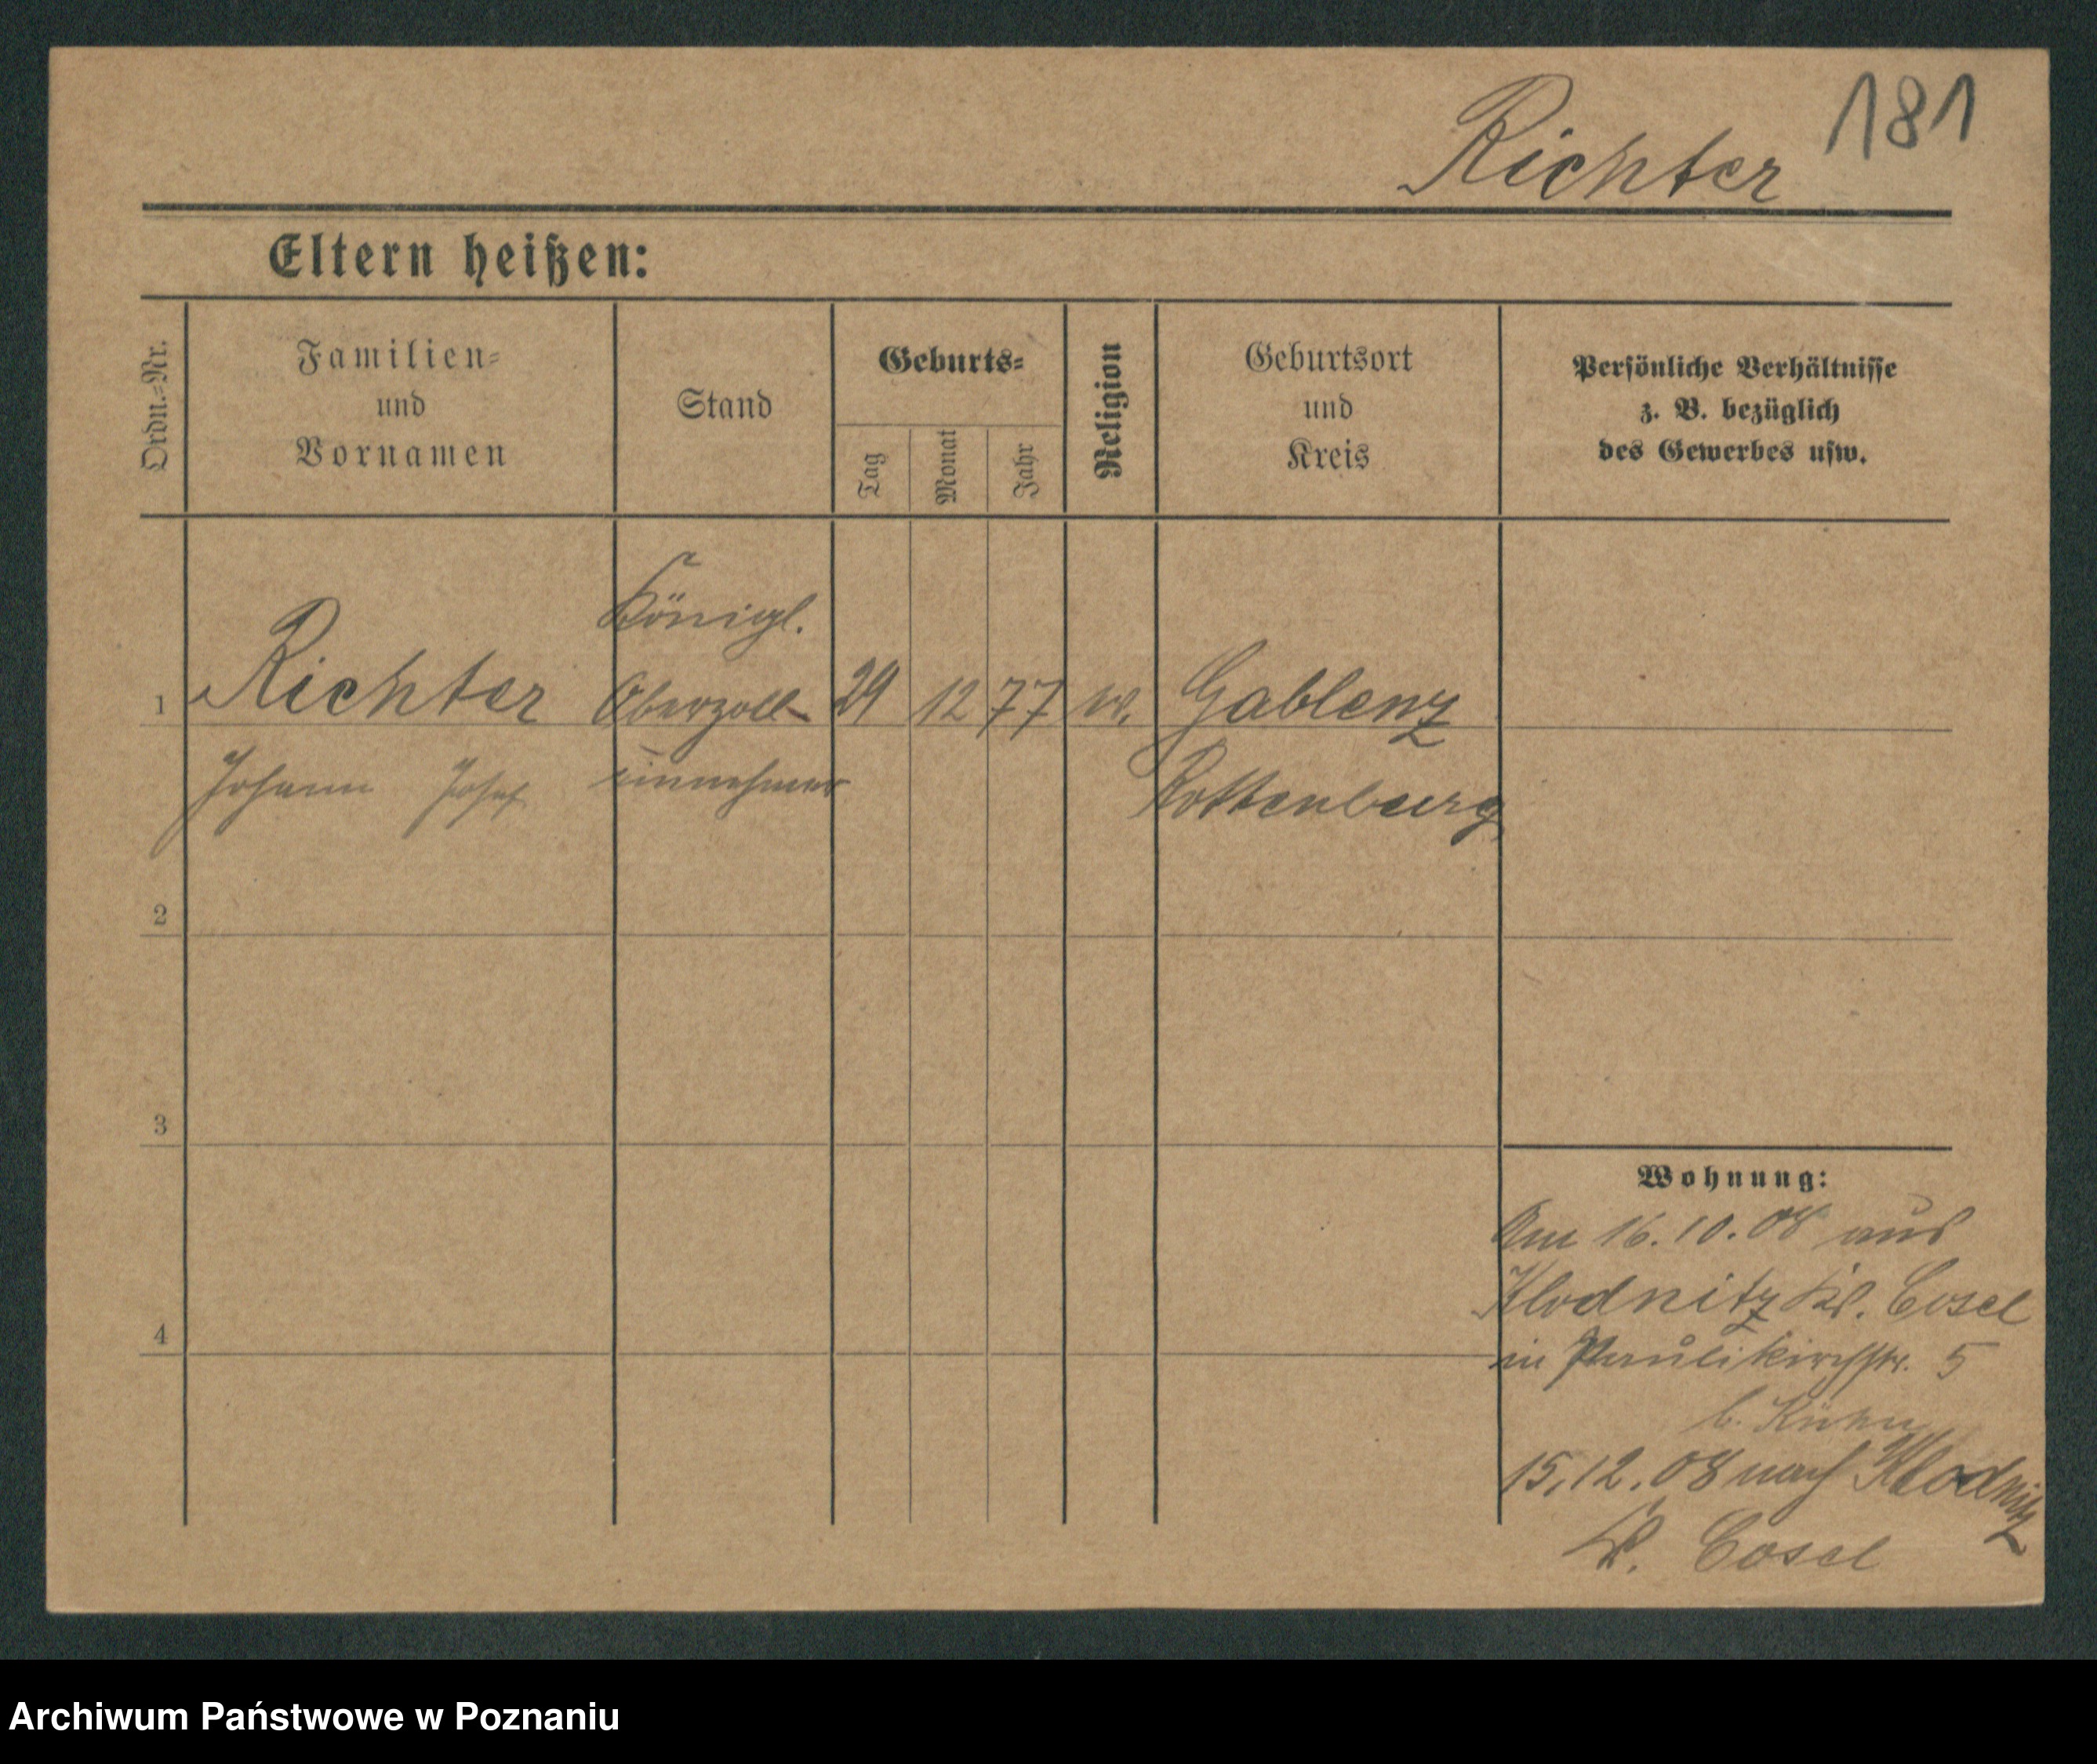 181
Richter
Eltern heißen:
Ordn.-Nr.
Familien-
und
Vornamen
Stand
Geburts-
Tag
Monat
Jahr
Religion
Geburtsort
und
Kreis
Persönliche Verhältnisse
z. B. bezüglich
des Gewerbes usw.
Königl.
1 Richter Oberzoll- 29 12 77 Gablenz
Johann Josef einnehmer Rottenburg
2
3
4
Wohnung:
Am 16.10.08 aus
Klodnitz Kr. Cosel
in Paulikirchstr. 5
b. Kühn
15.12.08 nach Klodnitz
Kr. Cosel
Archiwum Państwowe w Poznaniu